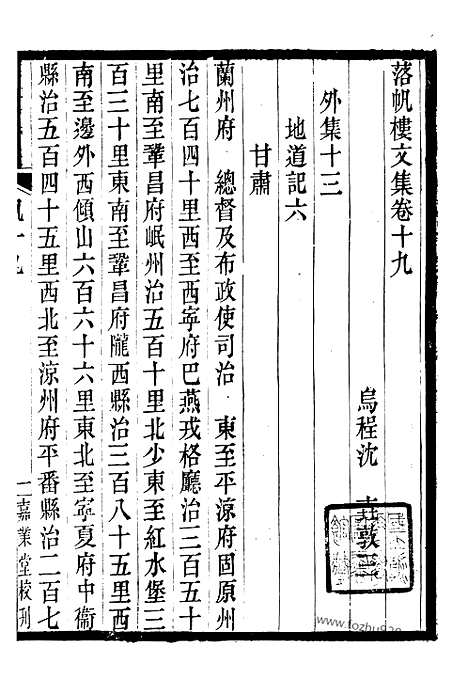 落帆樓文集卷十九
烏程沈 垚敦三
外集十三
地道記六
甘肅
蘭州府 總督及布政使司治 東至平涼府固原州
治七百四十里西至西寧府巴燕戎格廳治三百五十
里南至鞏昌府岷州治五百十里北少東至紅水堡三
百三十里東南至鞏昌府隴西縣治三百八十五里西
南至邊外西傾山六百六十六里東北至寧夏府中衞
縣治五百四十五里西北至涼州府平番縣治二百七
一嘉業堂校刊
www.fozhu920.com